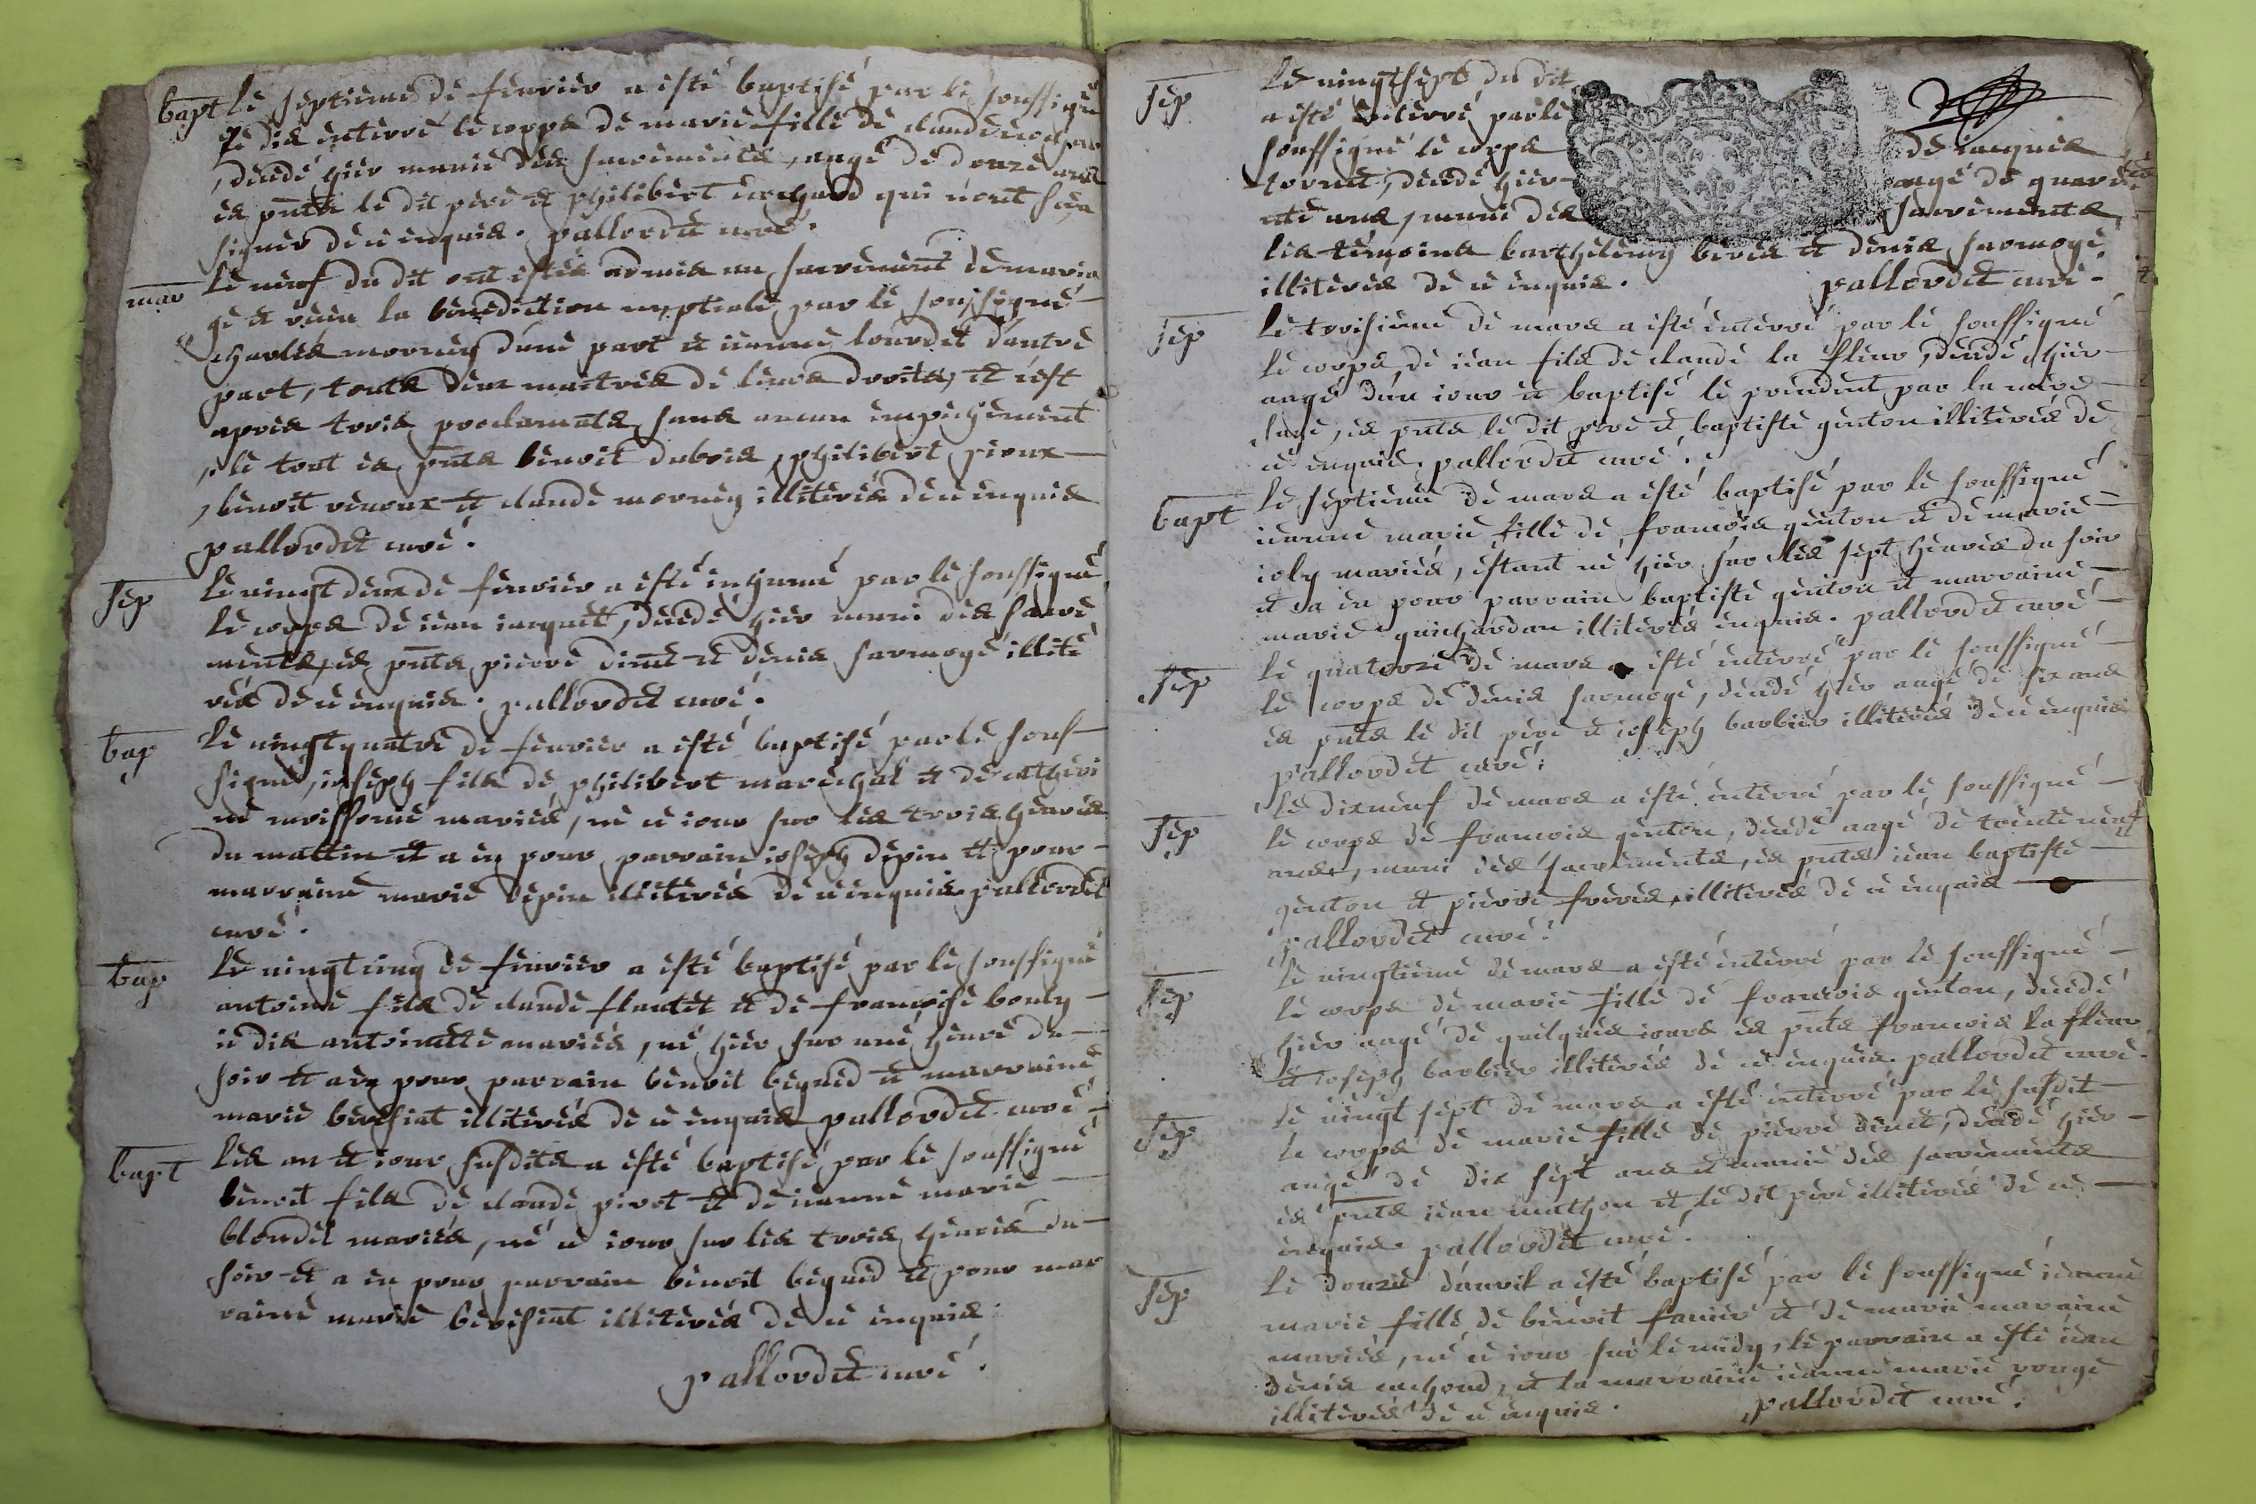 bapt le septieme de fevrier a esté baptisé par le soussigné
le dix enterré le corps de marie fille de claude
decedé hier munie des sacrements, aagé de douze ans
es pnts le dit pere et philibert qui nont sceu
signer de ce enquis. pallordet curé.
mar le neuf du dit ont estés admis au sacrement de maria
ge et receu la benediction nuptiale par le soussigné
charles mornay dune part et ieanne lourdet dautre
part, touts deux maitres de leurs droits, et cest
apres trois proclamats sans aucun empechement
, le tout es pnts benoit dubois, philibert sioux
, benoit renoux et claude mornay illiterés de ce enquis
pallordet curé.
sep le vingt deux de fevrier a esté inhumé par le soussigné
le corps de iean iaquet, decedé hier muni des sacre
ments, es pnts pierre dinet et denis sarmoge illite
rés de ce enquis. pallordet curé.
bap le vingtquatre de fevrier a esté baptisé par le sous
signé, ioseph fils de philibert marechal et de catheri
ne moissonné mariés, né ce iour sur les trois heures
du mattin et a eu pour parrain ioseph depin et pour
marraine marie depin illiterés de ce enquis pallordet
curé.
bap le vingtcinq de fevrier a esté baptisé par le soussigné
antoine fils de claude flautet et de francoise bouly
ie dis antoinette mariés, né hier sur une heure du
soir et a eu pour parrain benoit beguid et marraine
marie berchiat illiterés de ce enquis pallordet curé
bapt les an et iour susdits a esté baptisé par le soussigné
benoit fils de claude pirot et de ieanne marie
blondel mariés, né ce iour sur les trois heures du
soir et a eu pour parrain benoit beguid et pour mar
raine marie berchiat illiterés de ce enquis.
pallordet curé.
sep le vingtsept du dit
a esté enterré par le
soussigné le corps de iacques
tornet, decedé hier aagé de quaran
te ans, muni des sacrements,
les temoins barthelemy beres et denis sarmoge
illiterés de ce enquis. pallordet curé.
sep le troisieme de mars a esté enterré par le soussigné
le corps de iean fils de claude la fleur, decedé hier
aagé dun iour et baptisé le precedent par la mere
sage, es pnts le dit pere et baptiste genton illiterés de
ce enquis. pallordet curé.
bapt le septieme de mars a esté baptisé par le soussigné
ieanne marie fille de francois genton et de marie
ioly mariés, estant né hier sur les sept heures du soir
et a eu pour parrain baptiste genton et marraine
marie guichardan illiterés enquis. pallordet curé
sep le quatorze de mars a esté enterré par le soussigné
le corps de denis sarmoge, decedé hier aagé de six ans
es pnts le dit pere et ioseph barbier illiterés de ce enquis
pallordet curé.
sep le dixneuf de mars a esté enterré par le soussigné
le corps de francois genton, decedé aagé de trente neuf
ans, muni des sacrements, es pnts iean baptiste
genton et pierre freres, illiterés de ce enquis
pallordet curé.
sep le vingtieme de mars a esté enterré par le soussigné
le corps de marie fille de francois genton, decedé
hier aagé de quelques iours es pnts francois la fleur
et ioseph barbier illiterés de ce enquis. pallordet curé.
sep le vingt sept de mars a esté enterré par le susdit
le corps de marie fille de pierre dinet, decedé hier
aagé de dix sept ans et munie des sacrements
es pnts iean mathon et le dit pere illiterés de ce
enquis. pallordet curé.
sep le douze davril a esté baptisé par le soussigné ieanne
marie fille de benoit favier et de marie maraine
mariés, né ce iour sur le midy, le parrain a esté iean
denis et la marraine ieanne marie rouge
illiterés de ce enquis. pallordet curé.